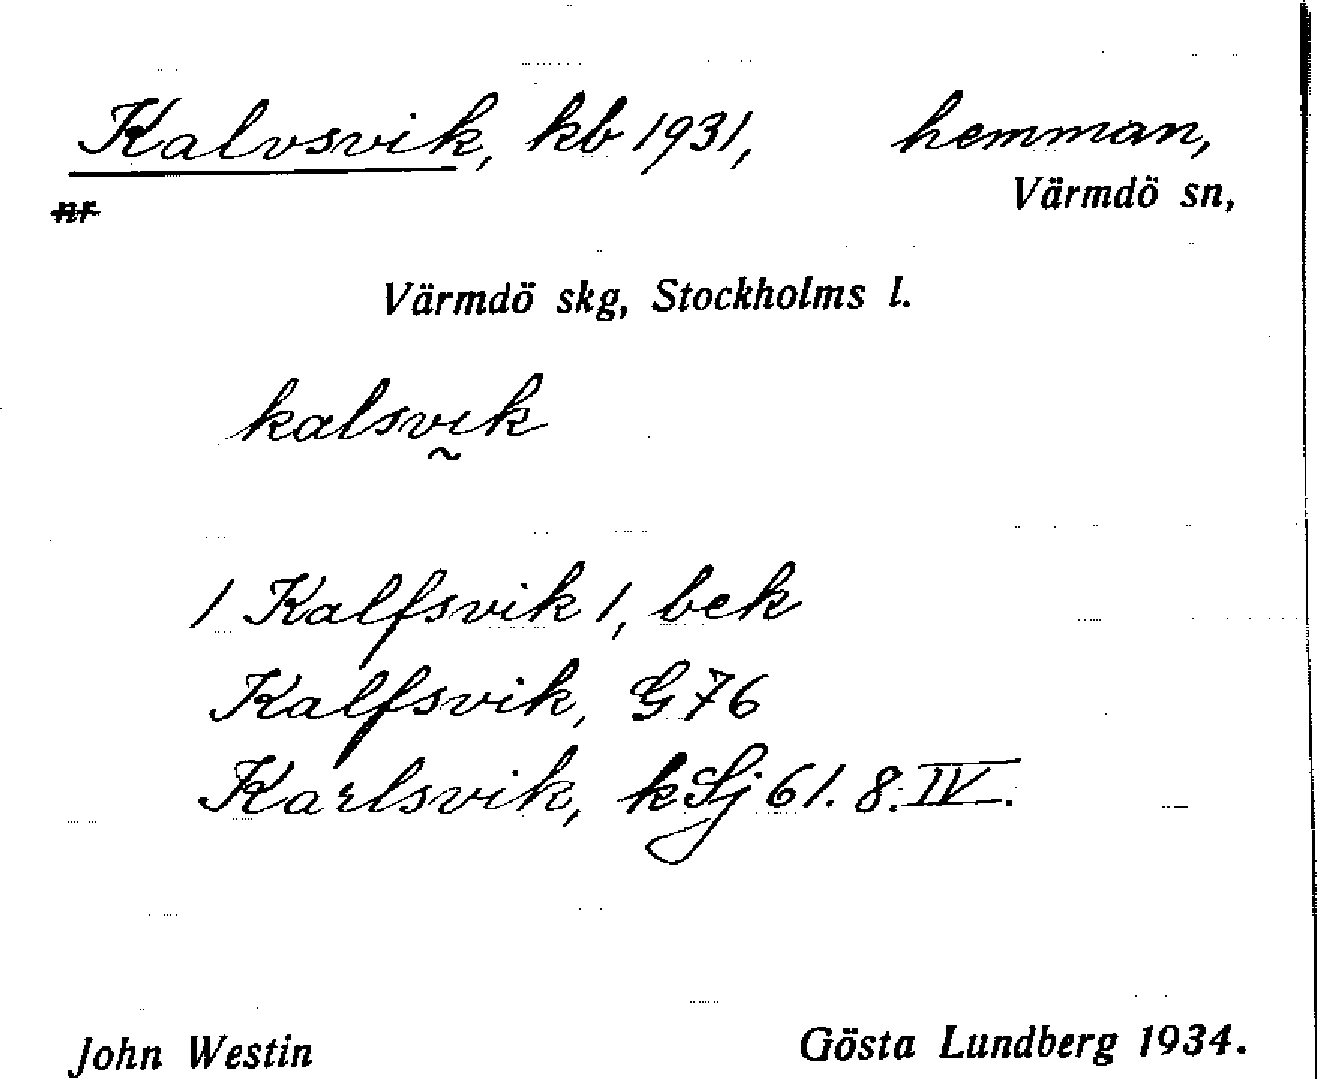 Kalvsvik, kb 1931, hemman,
Värmdö sn,
nr
Värmdö skg, Stockholms l.
kalsvik
/ Kalfsvik /, bek
Kalfsvik, G 76
Karlsvik, kSj 61. 8. IV.
John Westin Gösta Lundberg 1934.